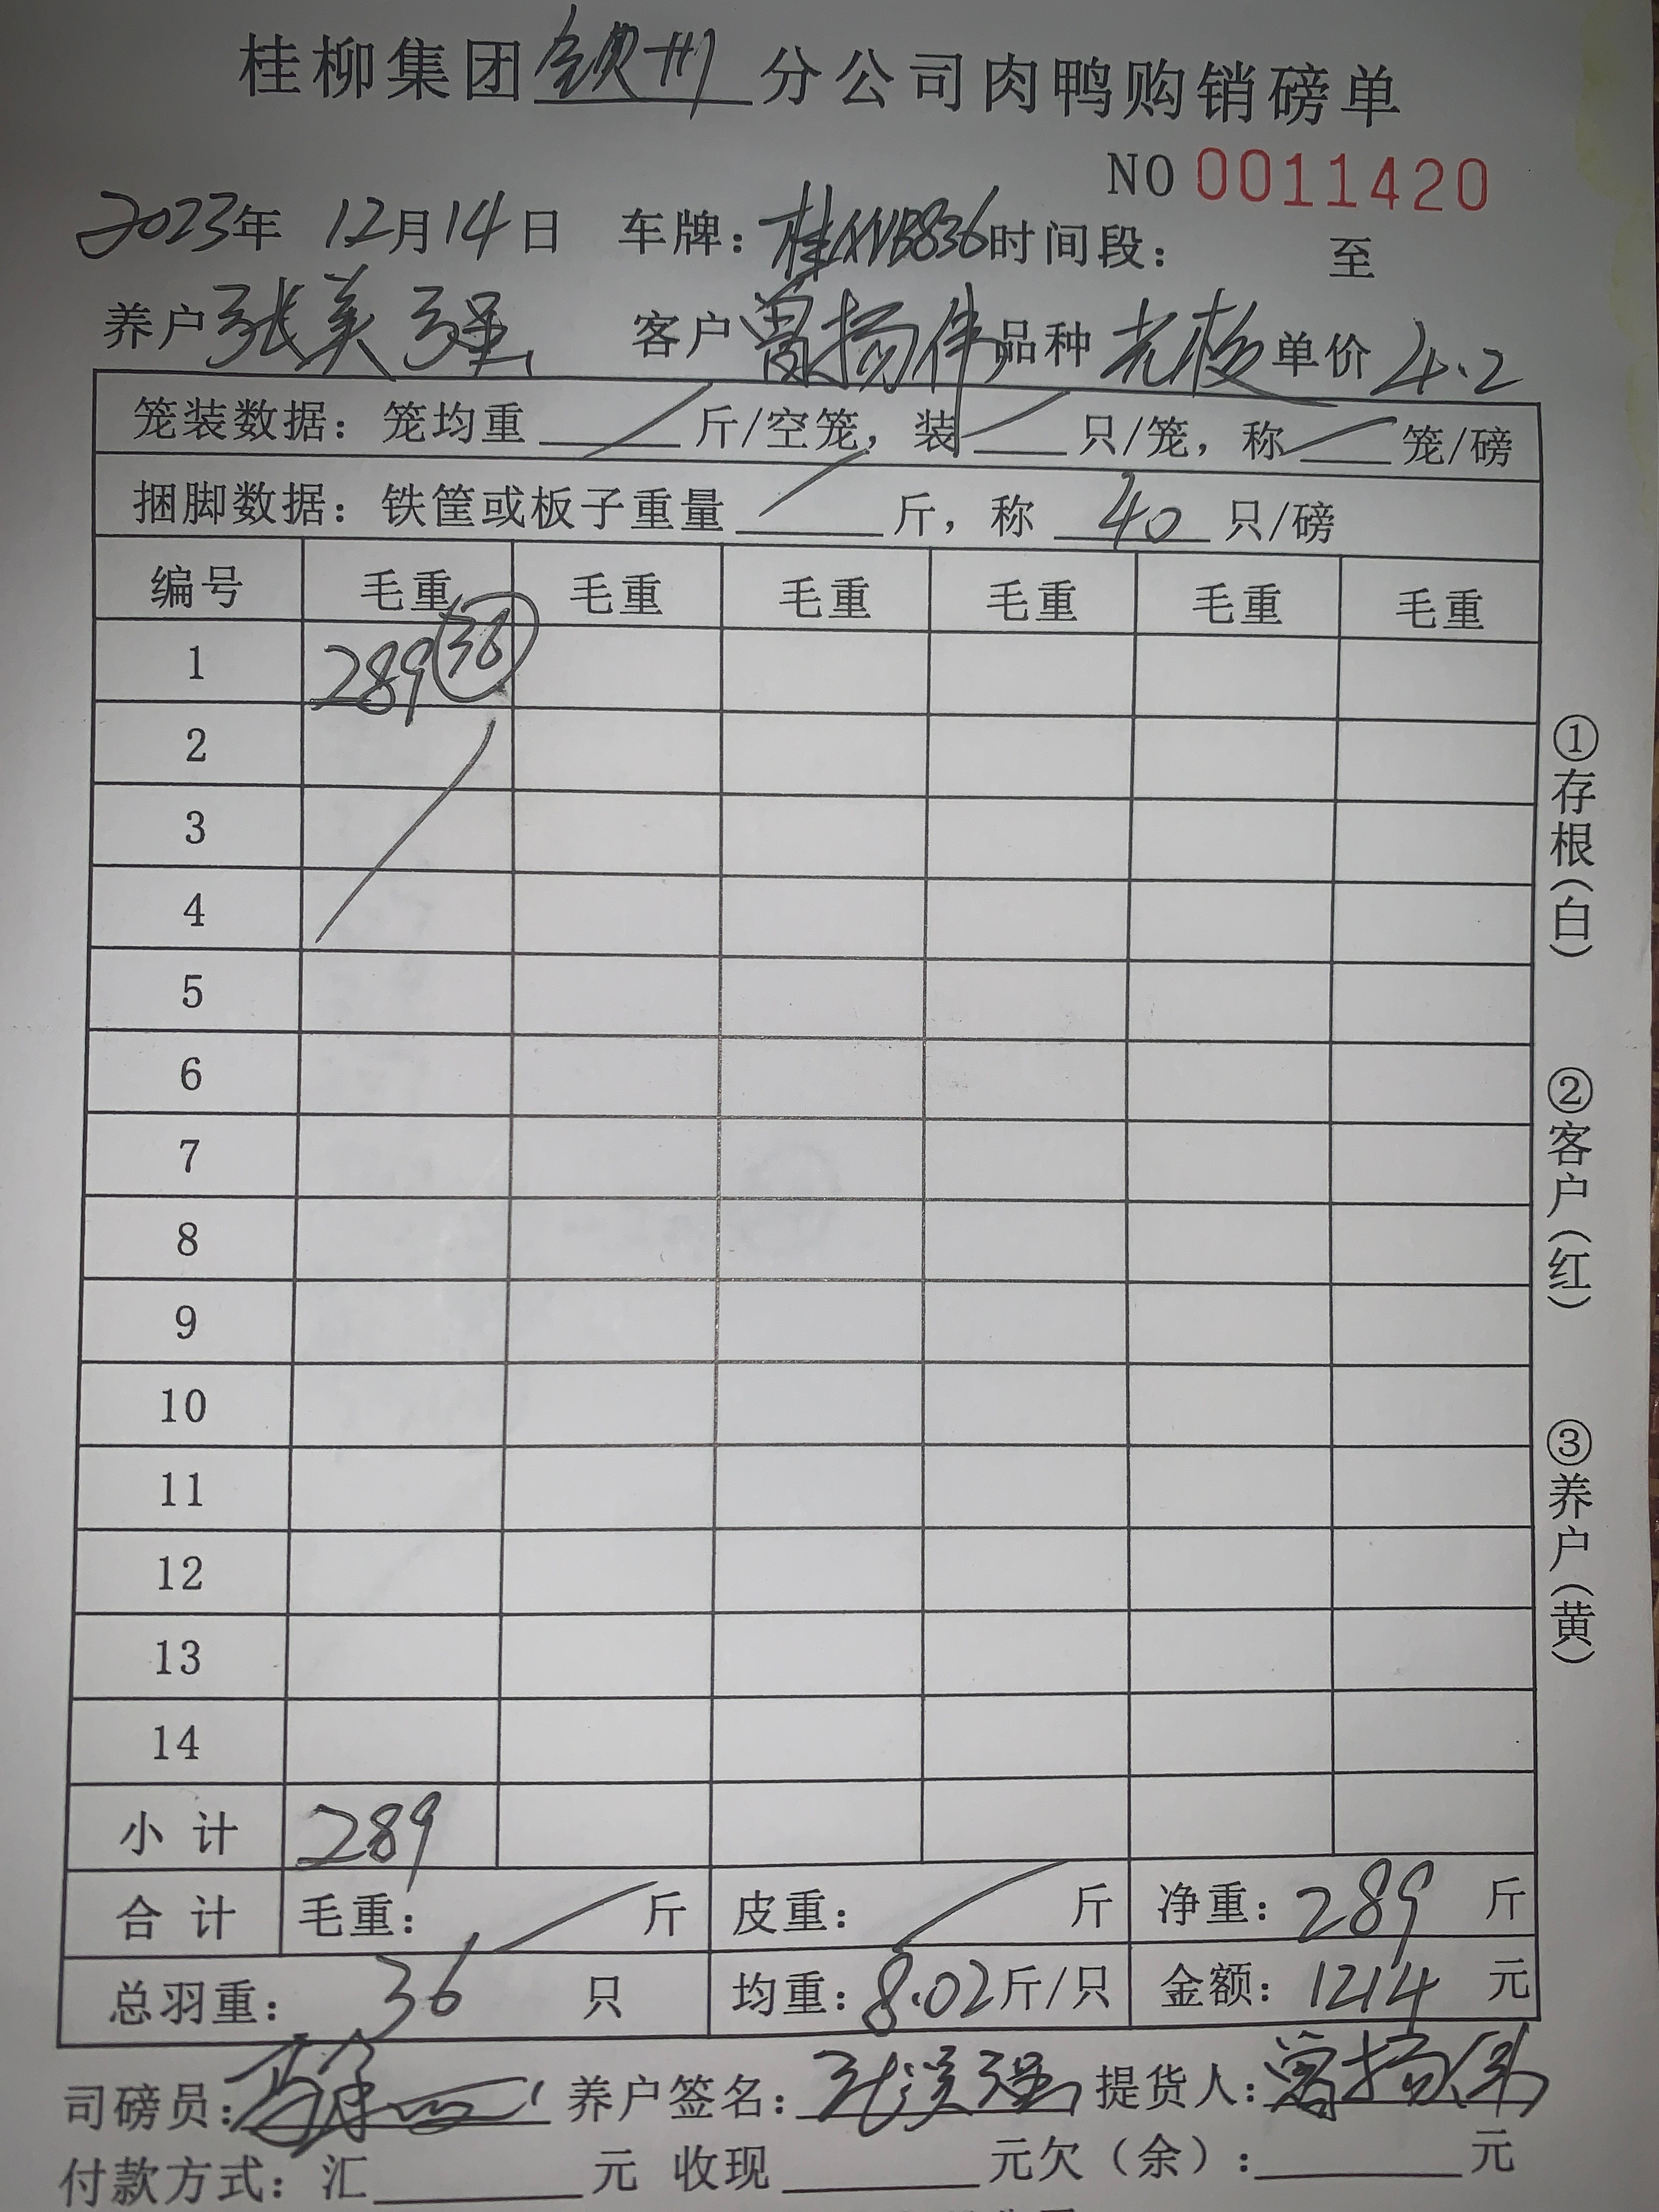 桂柳集团钦州分公司肉鸭购销磅单
NO 0011420
2023年 12月14日 车牌: 时间段: 至
养户张美强 客户曾扬伟 品种 单价4.2
笼装数据: 笼均重 / 斤/空笼, 装 / 只/笼, 称 / 笼/磅
捆脚数据: 铁筐或板子重量 / 斤, 称 40 只/磅
编号 毛重 毛重 毛重 毛重 毛重 毛重
1 289 36
2
3
4
5
6
7
8
9
10
11
12
13
14
小计 289
合计 毛重: / 斤 皮重: / 斤 净重: 289 斤
总羽重: 36 只 均重: 8.02斤/只 金额: 1214 元
司磅员: 养户签名: 张美强 提货人: 曾扬伟
付款方式: 汇 元 收现 元欠(余): 元
①存根(白)
②客户(红)
③养户(黄)